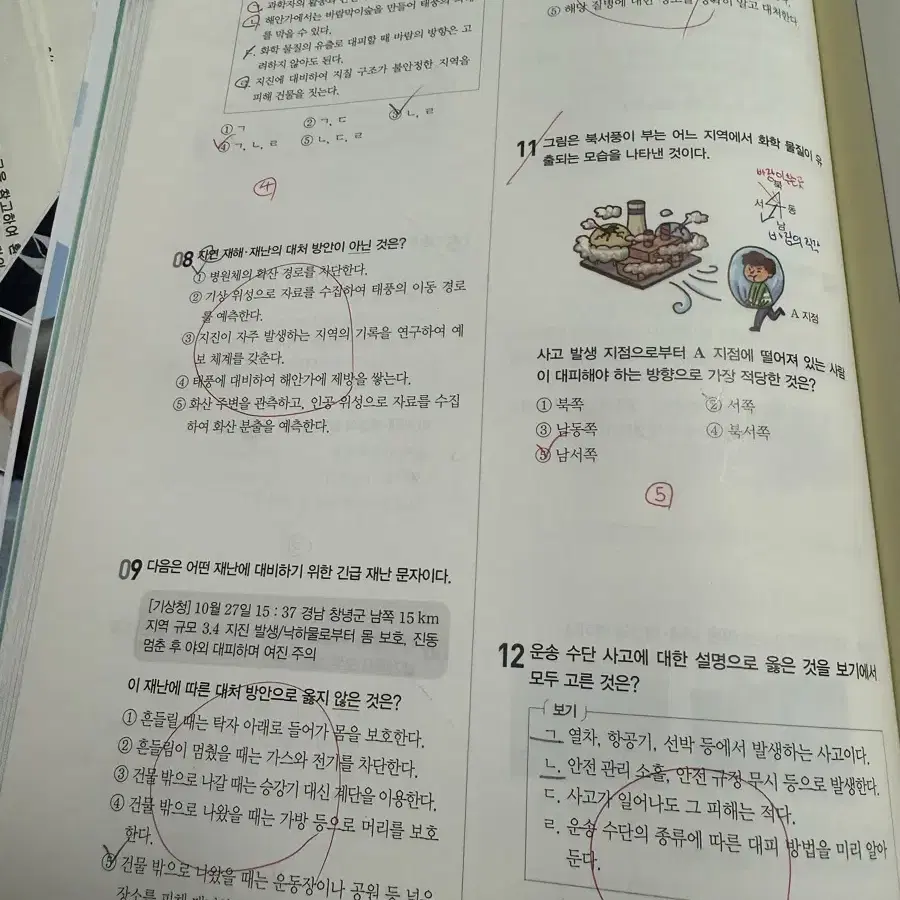 해안가에서는 바람막이숲을 만들어 태풍의
를 막을 수 있다.
화학 물질의 유출로 대피할 때 바람의 방향은 고
려하지 않아도 된다.
지진에 대비하여 지질 구조가 불안정한 지역을
피해 건물을 짓는다.
① ㄱ ② ㄱ, ㄷ ③ ㄴ, ㄹ
④ ㄱ, ㄴ, ㄹ ⑤ ㄴ, ㄷ, ㄹ
④
08 자연 재해·재난의 대처 방안이 아닌 것은?
① 병원체의 확산 경로를 차단한다.
② 기상 위성으로 자료를 수집하여 태풍의 이동 경로
를 예측한다.
③ 지진이 자주 발생하는 지역의 기록을 연구하여 예
보 체계를 갖춘다.
④ 태풍에 대비하여 해안가에 제방을 쌓는다.
⑤ 화산 주변을 관측하고, 인공 위성으로 자료를 수집
하여 화산 분출을 예측한다.
09 다음은 어떤 재난에 대비하기 위한 긴급 재난 문자이다.
[기상청] 10월 27일 15 : 37 경남 창녕군 남쪽 15 km
지역 규모 3.4 지진 발생/낙하물로부터 몸 보호, 진동
멈춘 후 야외 대피하며 여진 주의
이 재난에 따른 대처 방안으로 옳지 않은 것은?
① 흔들릴 때는 탁자 아래로 들어가 몸을 보호한다.
② 흔들림이 멈췄을 때는 가스와 전기를 차단한다.
③ 건물 밖으로 나갈 때는 승강기 대신 계단을 이용한다.
④ 건물 밖으로 나왔을 때는 가방 등으로 머리를 보호
한다.
⑤ 건물 밖으로 나왔을 때는 운동장이나 공원 등 넓은
⑤ 해당 질병에 대한 알고 대처한다.
11 그림은 북서풍이 부는 어느 지역에서 화학 물질이 유
출되는 모습을 나타낸 것이다.
북
서 동
남
A 지점
사고 발생 지점으로부터 A 지점에 떨어져 있는 사람
이 대피해야 하는 방향으로 가장 적당한 것은?
① 북쪽 ② 서쪽
③ 남동쪽 ④ 북서쪽
⑤ 남서쪽
⑤
12 운송 수단 사고에 대한 설명으로 옳은 것을 보기에서
모두 고른 것은?
보기
ㄱ. 열차, 항공기, 선박 등에서 발생하는 사고이다.
ㄴ. 안전 관리 소홀, 안전 규정 무시 등으로 발생한다.
ㄷ. 사고가 일어나도 그 피해는 적다.
ㄹ. 운송 수단의 종류에 따른 대피 방법을 미리 알아
둔다.